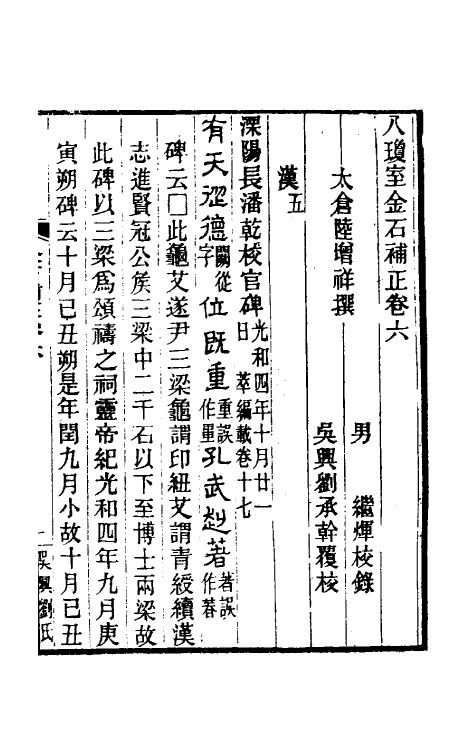 八瓊室金石補正卷六
太倉陸增祥撰
男　繼煇校錄
吳興劉承幹覆校
漢五
溧陽長潘乾校官碑光和四年十月廿一日　萃編載卷十七
有天德字闕從位既重重誤作量孔武赳著著誤作蓍
碑云□此龜艾遂尹三梁龜謂印紐艾謂青綬續漢
志進賢冠公矦三梁中二千石以下至博士兩梁故
此碑以三梁為頌禱之祠靈帝紀光和四年九月庚
寅朔碑云十月己丑朔是年閏九月小故十月已丑
吳興劉氏